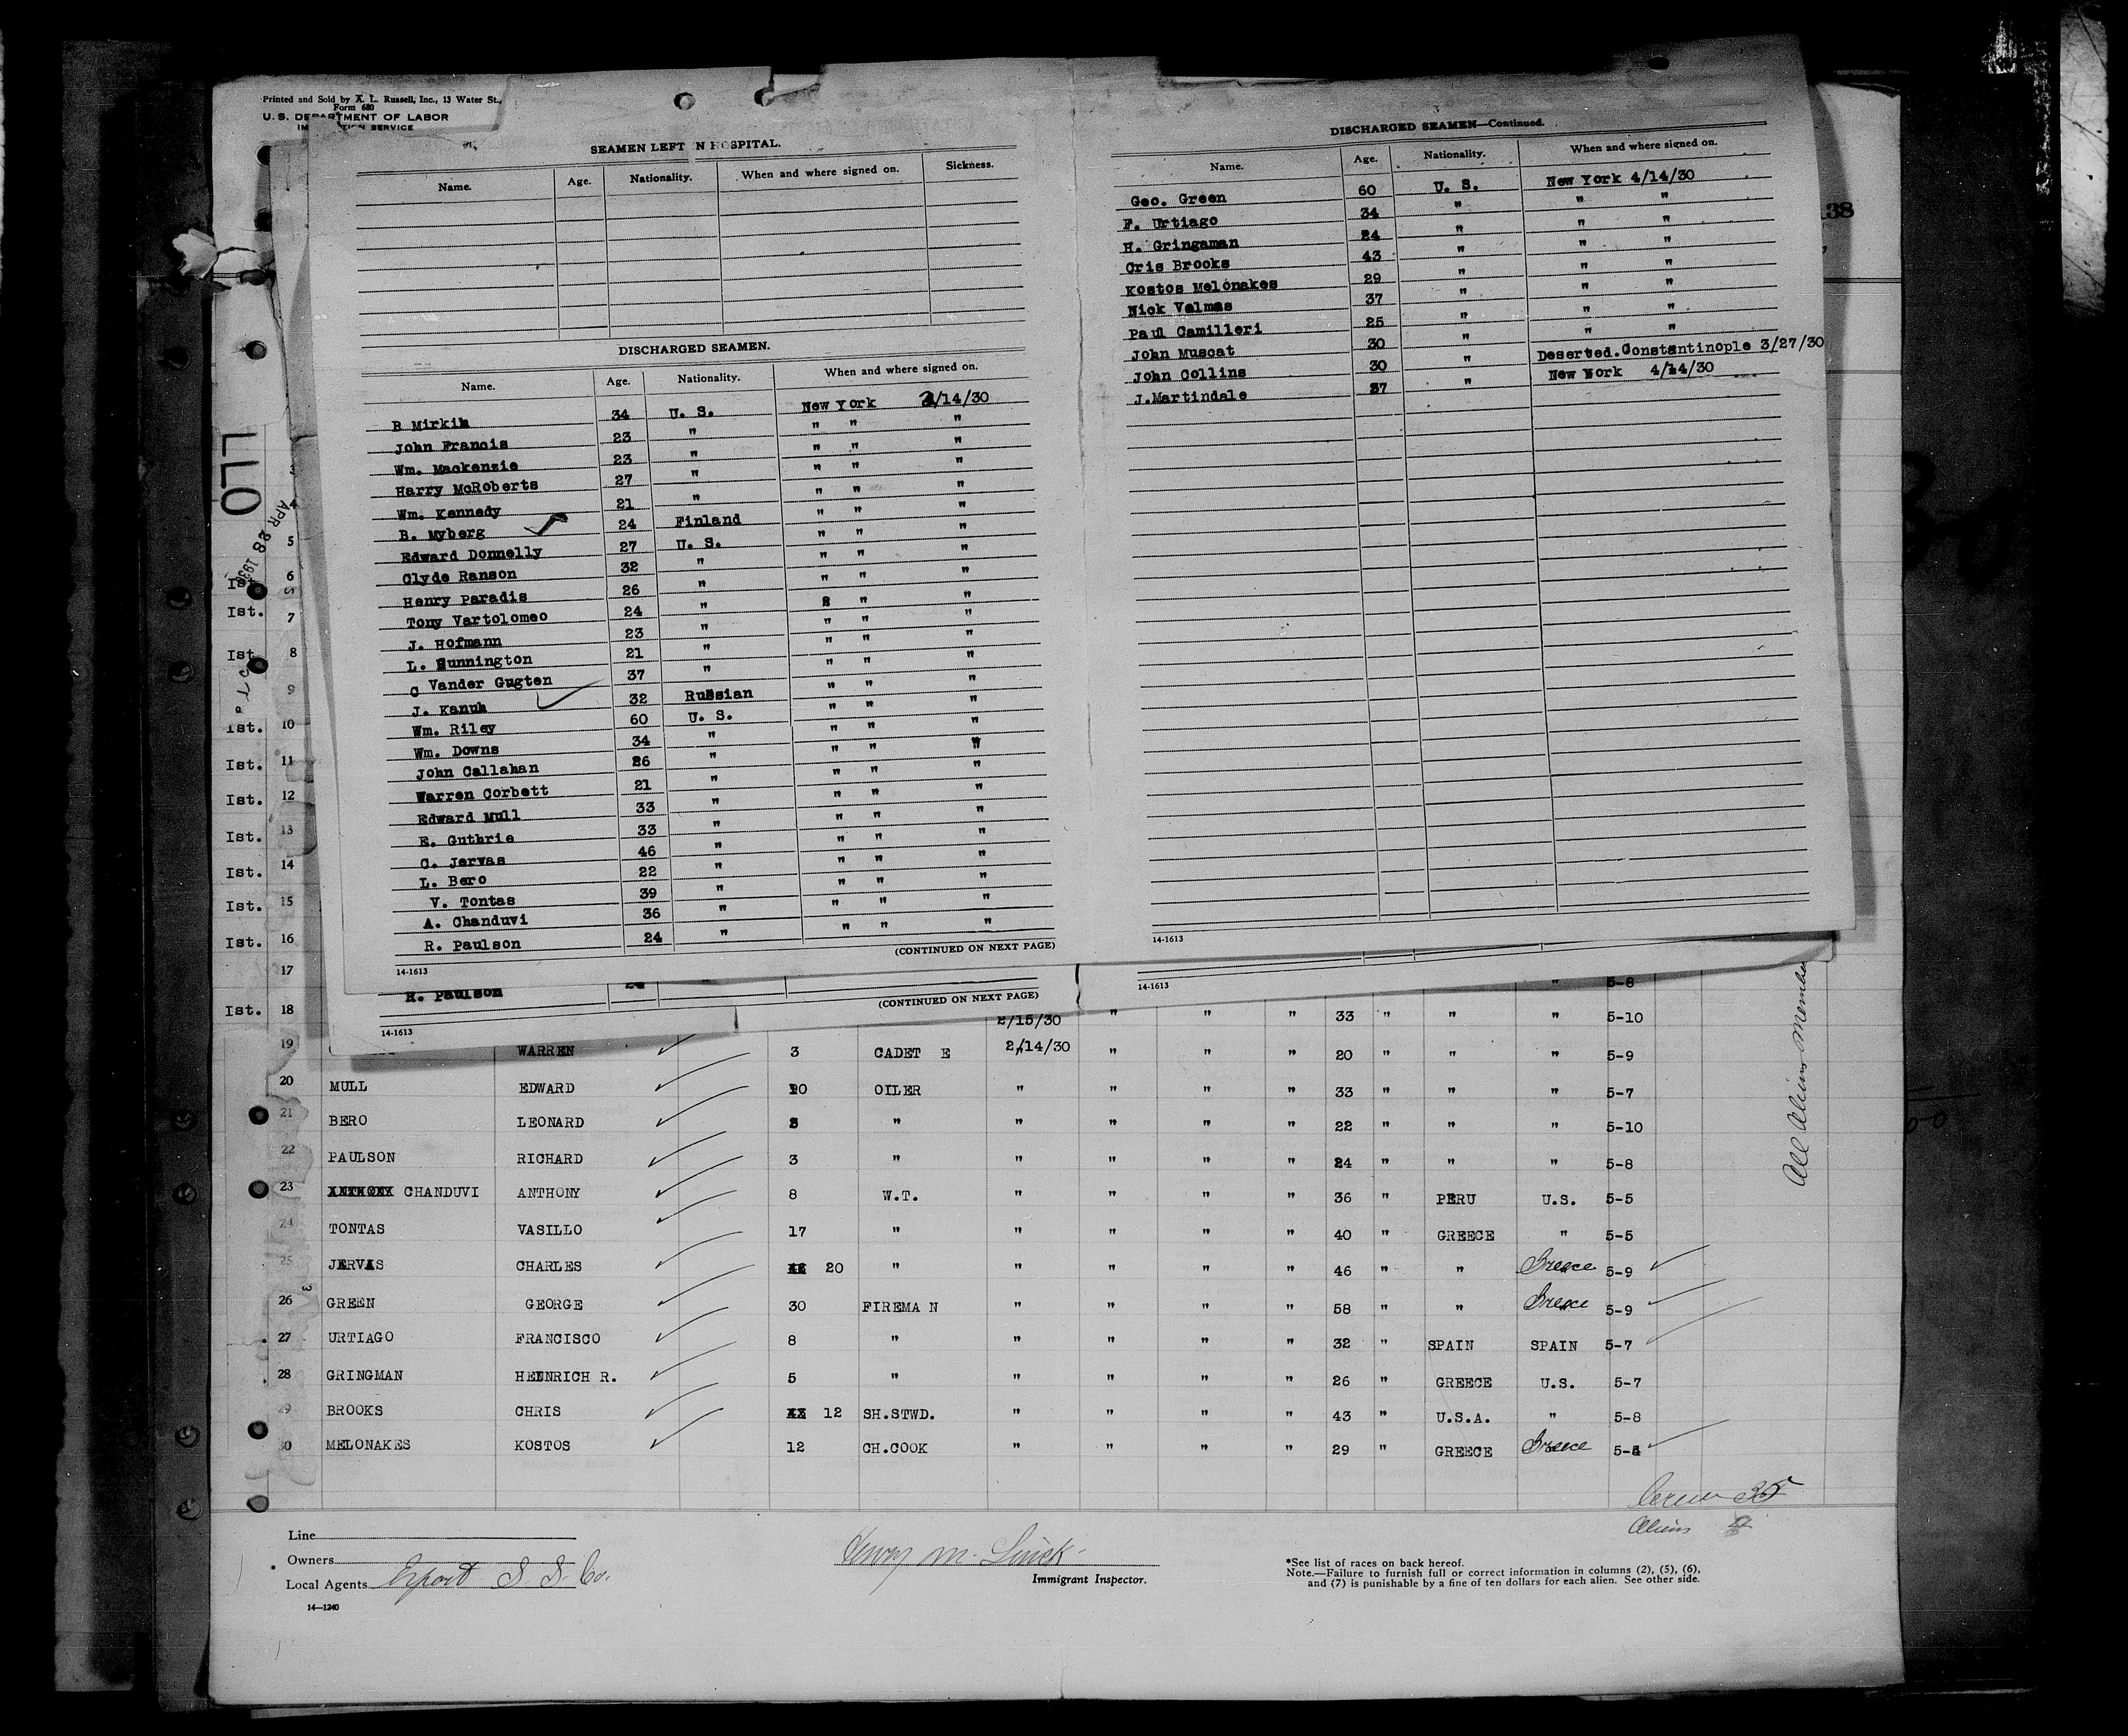 Printed and Sold by A. L. Russell, Inc., 13 Water St.,
Form 680
U. S. DEPARTMENT OF LABOR
SERVICE
SEAMEN LEFT N HOSPITAL.
Name. Age. Nationality. When and where signed on. Sickness.
DISCHARGED SEAMEN.
Name. Age. Nationality. When and where signed on.
B Mirkin 34 U. S. New York 2/14/30
John Francis 23 " " " "
Wm. Mackenzie 23 " " " "
Harry McRoberts 27 " " " "
Wm. Kennedy 21 " " " "
B. Myberg 24 Finland " " "
Edward Donnelly 27 U. S. " " "
Clyde Ranson 32 " " " "
Henry Paradis 26 " " " "
Tony Vartolomeo 24 " " "
J. Hofmann 23 " " " "
L. Hunnington 21 " " " "
C Vander Gugten 37 " " " "
J. Kanuk 32 Russian " " "
Wm. Riley 60 U. S. " " "
Wm. Downs 34 " " " "
John Callahan 26 " " " "
Warren Corbett 21 " " " "
Edward Mull 33 " " " "
E. Guthrie 33 " " " "
C. Jervas 46 " " " "
L. Bero 22 " " " "
V. Tontas 39 " " " "
A. Chanduvi 36 " " " "
R. Paulson 24 " " " "
(CONTINUED ON NEXT PAGE)
14-1613
DISCHARGED SEAMEN—Continued.
Name. Age. Nationality. When and where signed on.
Geo. Green 60 U. S. New York 4/14/30
F. Urtiago 34 " " "
H. Gringaman 24 " " "
Cris Brooks 43 " " "
Kostos Melonakes 29 " " "
Nick Velmas 37 " " "
Paul Camilleri 25 " " "
John Muscat 30 " " "
John Collins 30 " Deserted.Constantinople 3/27/30
J.Martindale 37 " New York 4/14/30
14-1613
R. Paulson 24
(CONTINUED ON NEXT PAGE)
14-1613
14-1613
38
LLO
APR 28 1930
3
4
5
Ist. 6
Ist. 7
Ist 8
9
Ist. 10
Ist. 11
Ist. 12
Ist. 13
Ist. 14
Ist. 15
Ist. 16
17 " 5-8
Ist. 18 2/15/30 " " " 33 " " " 5-10
19 WARREN 3 CADET E 2/14/30 " " " 20 " " " 5-9
20 MULL EDWARD 10 OILER " " " " 33 " " " 5-7
21 BERO LEONARD " " " " " 22 " " " 5-10
22 PAULSON RICHARD 3 " " " " " 24 " " " 5-8
23 CHANDUVI ANTHONY 8 W.T. " " " " 36 " PERU U.S. 5-5
24 TONTAS VASILLO 17 " " " " " 40 " GREECE " 5-5
25 JERVAS CHARLES 20 " " " " " 46 " " Greece 5-9
26 GREEN GEORGE 30 FIREMA N " " " " 58 " " Greece 5-9
27 URTIAGO FRANCISCO 8 " " " " " 32 " SPAIN SPAIN 5-7
28 GRINGMAN HEINRICH R. 5 " " " " " 26 " GREECE U.S. 5-7
29 BROOKS CHRIS 12 SH.STWD. " " " " 43 " U.S.A. " 5-8
30 MELONAKES KOSTOS 12 CH.COOK " " " " 29 " GREECE Greece 5-4
All Aliens Member
Crew 35
Aliens
Line
Owners
Local Agents Export S. S. Co.
14—1240
Immigrant Inspector.
*See list of races on back hereof.
Note.—Failure to furnish full or correct information in columns (2), (5), (6),
and (7) is punishable by a fine of ten dollars for each alien. See other side.